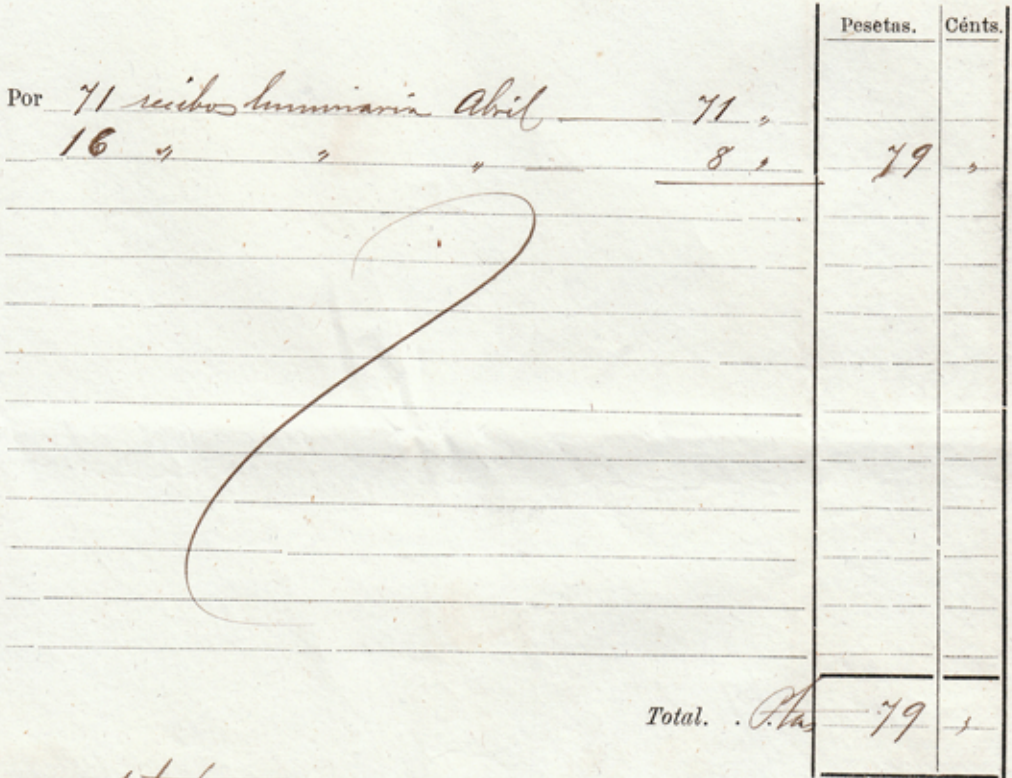 Pesetas. Cénts.
Por 71 recibos luminaria Abril 71 "
16 " " " 8 " 79 "
Total. . Ptas 79 "